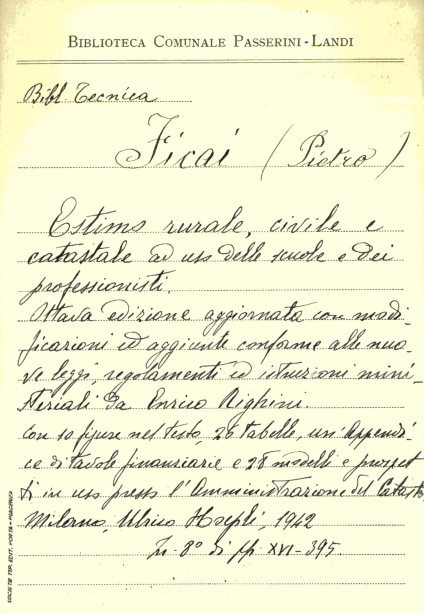 BIBLIOTECA COMUNALE PASSERINI-LANDI
Bibl. Tecnica
Ficai (Pietro)
Estimo rurale, civile e
catastale ad uso delle scuole e dei
professionisti.
Ottava edizione aggiornata con modi-
ficazioni ed aggiunte conforme alle nuo-
ve leggi, regolamenti ed istruzioni mini-
steriali da Enrico Righini.
Con 10 figure nel testo, 26 tabelle, un'Appendi-
ce di tavole finanziarie e 28 modelli e prospet
ti in uso presso l'Amministrazione del Catasto
Milano, Ulrico Hoepli, 1942
In-8° di pp XVI-395.
SOCIETÀ TIP. EDIT. PORTA - PIACENZA